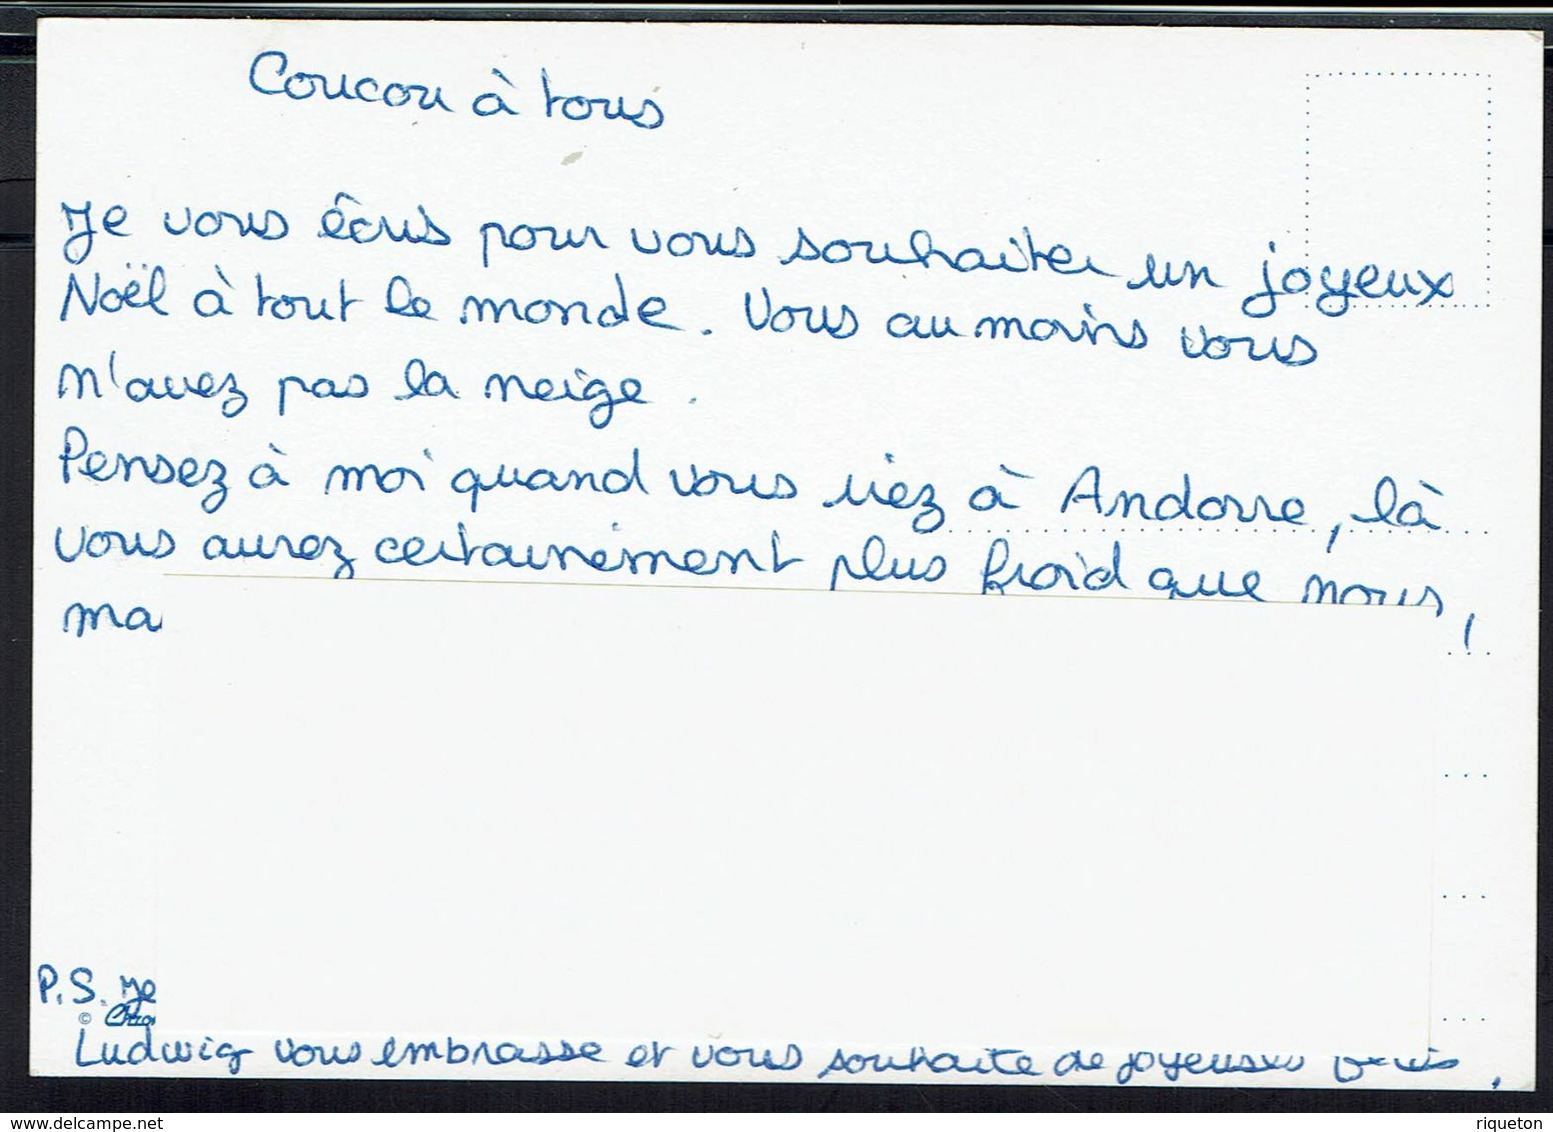 Coucou à tous
Je vous écris pour vous souhaiter un joyeux
Noël à tout le monde. Vous au moins vous
n'avez pas la neige.
Pensez à moi quand vous irez à Andorre, là
vous aurez certainement plus froid que nous,
ma
P.S. Je
©
Ludwig vous embrasse et vous souhaite de joyeuses
delcampe.net
riqueton